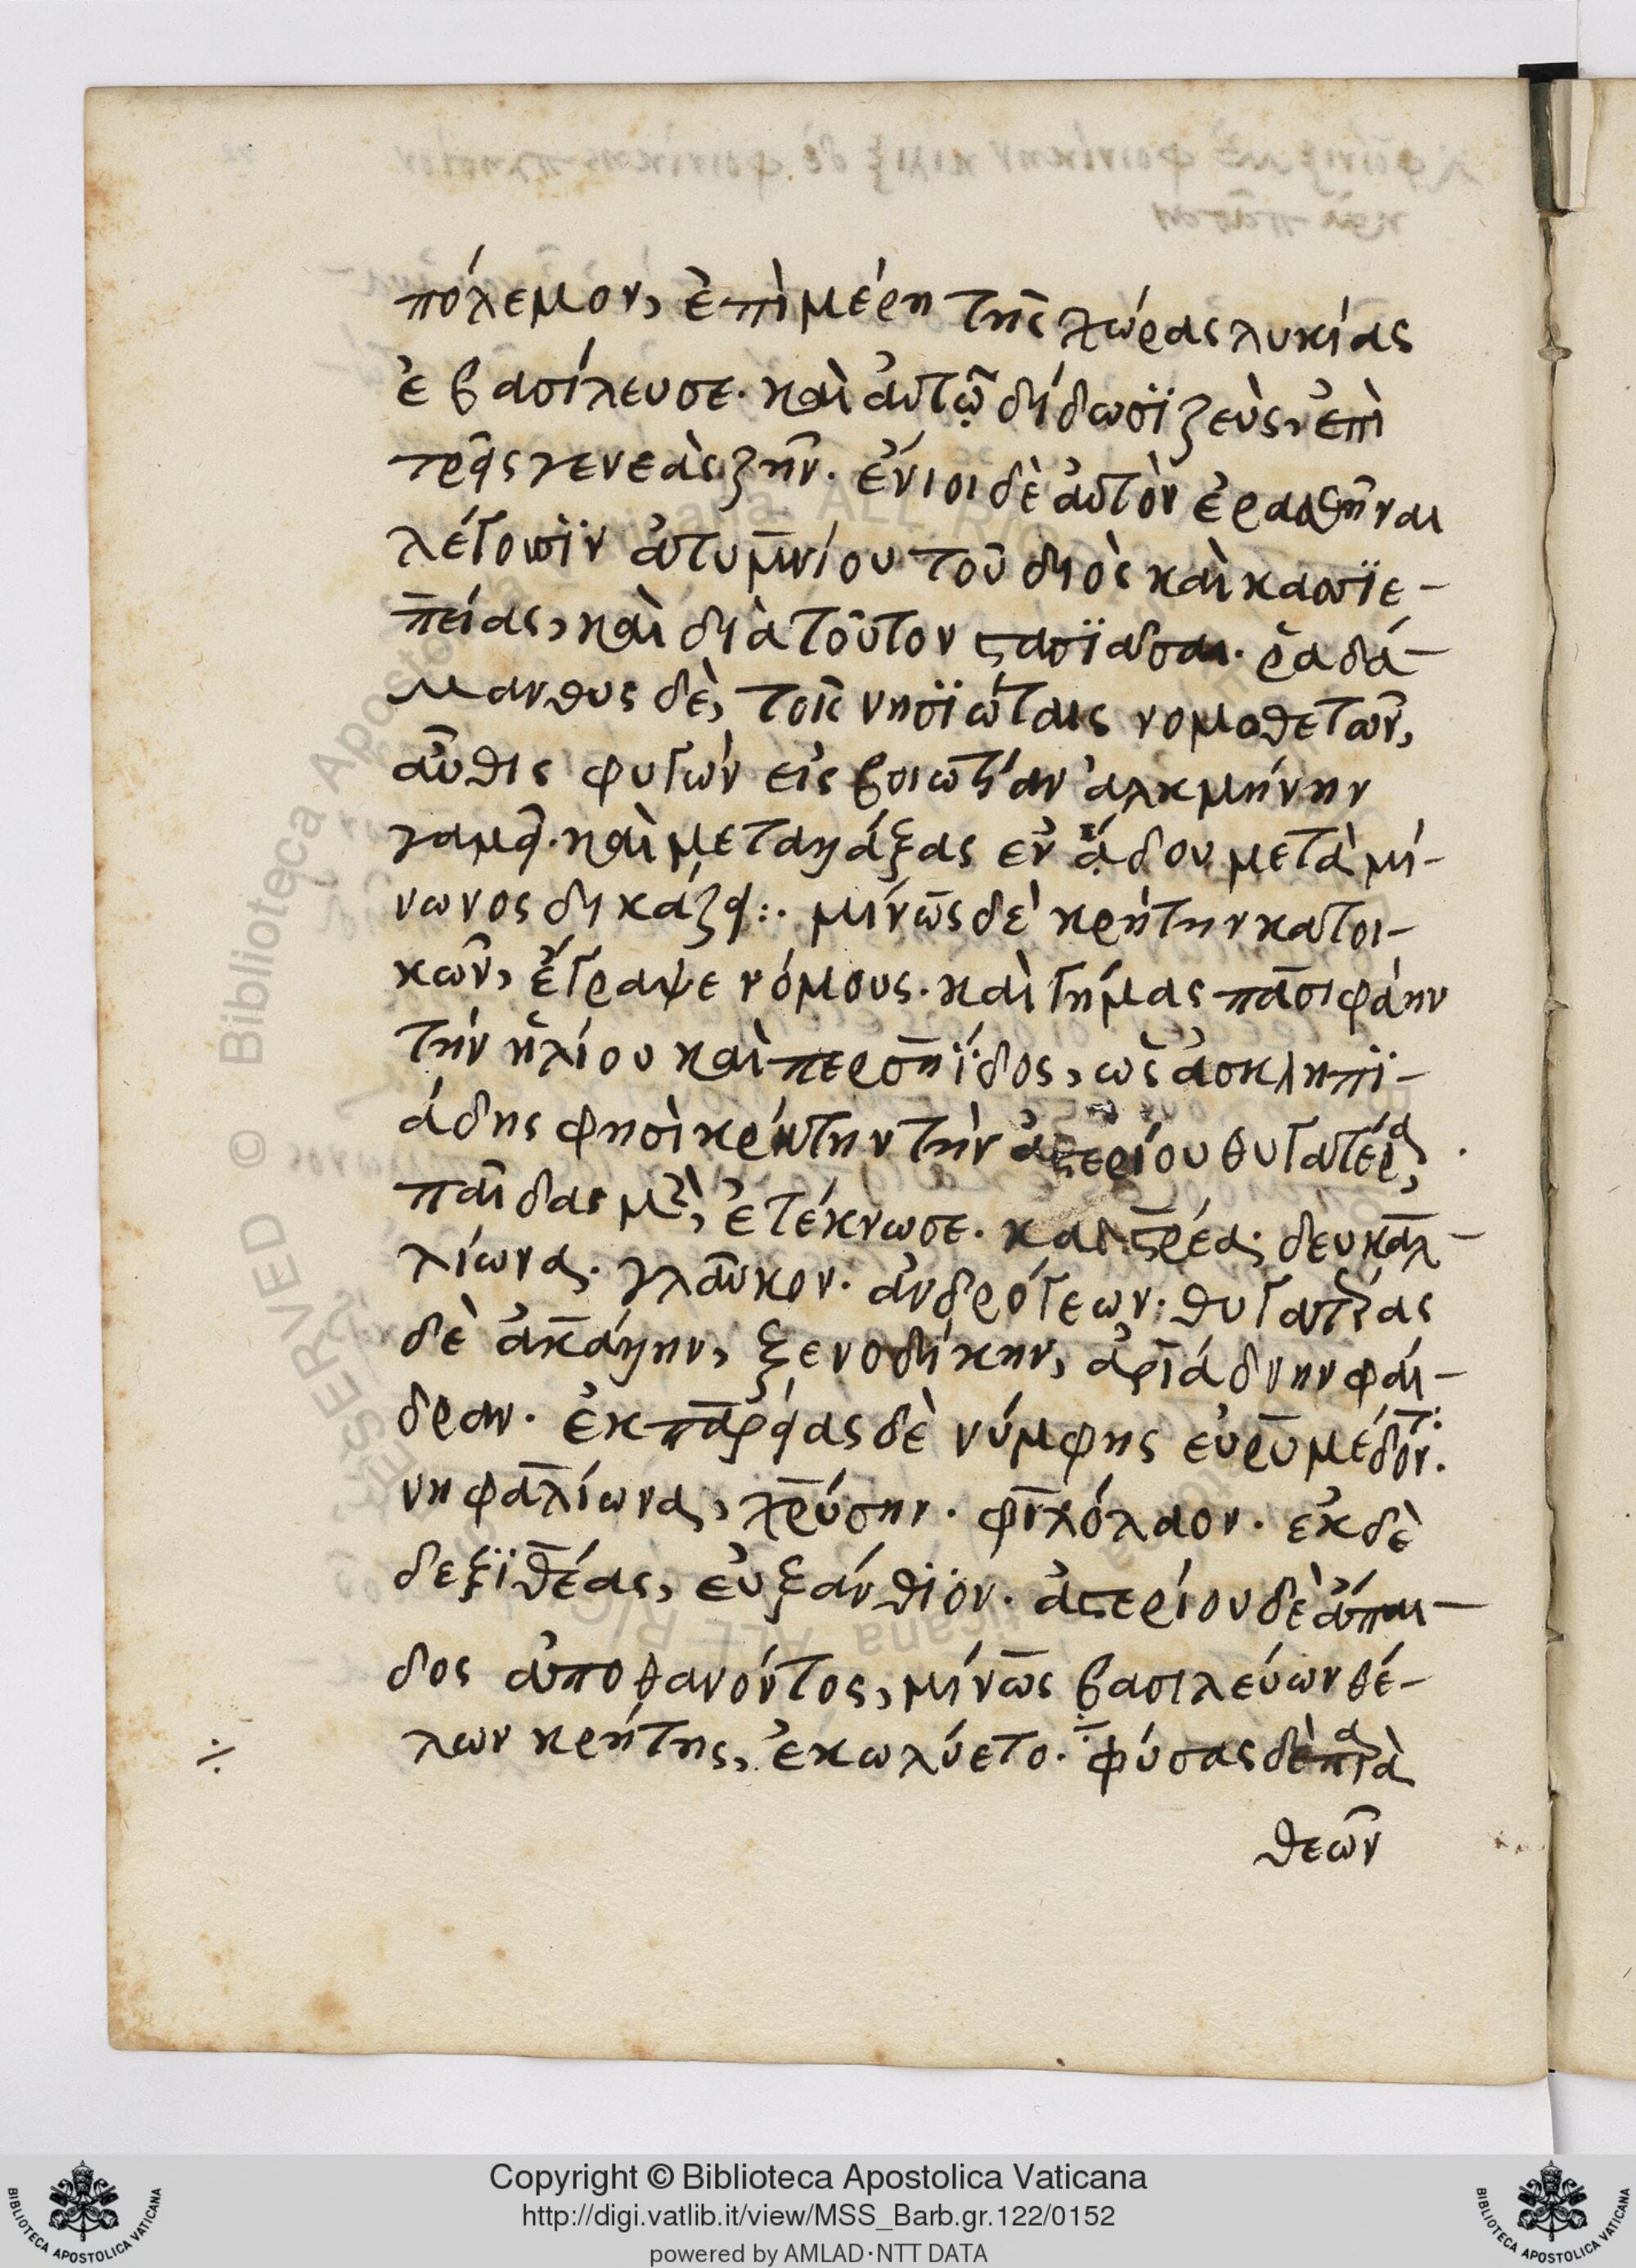 πόλεμον, ἐπὶ μέρη τῆς χώρας λυκίας
ἐβασίλευσε· καὶ ἀυτῷ δίδωσϊ ζεὺς, ἐπὶ
τρεῖς γενεὰς ζῆν. ἔνιοι δὲ ἀυτὸν ἐρασθῆναι
λέγουσϊν ἀτυμνίου τοῦ διὸς καὶ κασϊε-
πείας, καὶ διὰ τοῦτον στασϊάσαι. ῥαδά-
μανθυς δὲ, τοῖς νησϊώταις νομοθετῶν,
αὖθις φυγών εἰς βοιωτίαν ἀλκμήνην
γαμεῖ. καὶ μεταλλάξας ἐν ᾅδου μετὰ μί-
νωνος δικάζει:. μίνως δὲ κρήτην κατοι-
κῶν, ἔγραψε νόμους. καὶ γήμας πασιφάην
τήν ἡλίου καὶ περσηΐδος, ὡς ἀσκληπϊ-
άδης φησὶ κρήτην τὴν ἀστερίου θυγατέρα,
παῖδας μὲν, ἐτέκνωσε. κατρέα; δευκαλ-
λίωνα. γλαῦκον. ἀνδρόγεων: θυγατέρας
δὲ ἀκάλλην, ξενοδίκην, ἀριάδνην φαί-
δραν. ἐκ παρείας δὲ νύμφης εὐρυμέδοντ:
νηφαλίωνα, χρύσην. φιλόλαον. ἐκ δὲ
δεξϊθέας, εὐξάνθϊον. ἀστερίου δὲ ἄπαι-
δος ἀποθανόντος, μίνως βασιλεύων θέ-
λων κρήτης, ἐκωλύετο. φύσας δὲ παρὰ
÷
θεῶν
Copyright © Biblioteca Apostolica Vaticana
http://digi.vatlib.it/view/MSS_Barb.gr.122/0152
powered by AMLAD·NTT DATA
BIBLIOTECA APOSTOLICA VATICANA
BIBLIOTECA APOSTOLICA VATICANA